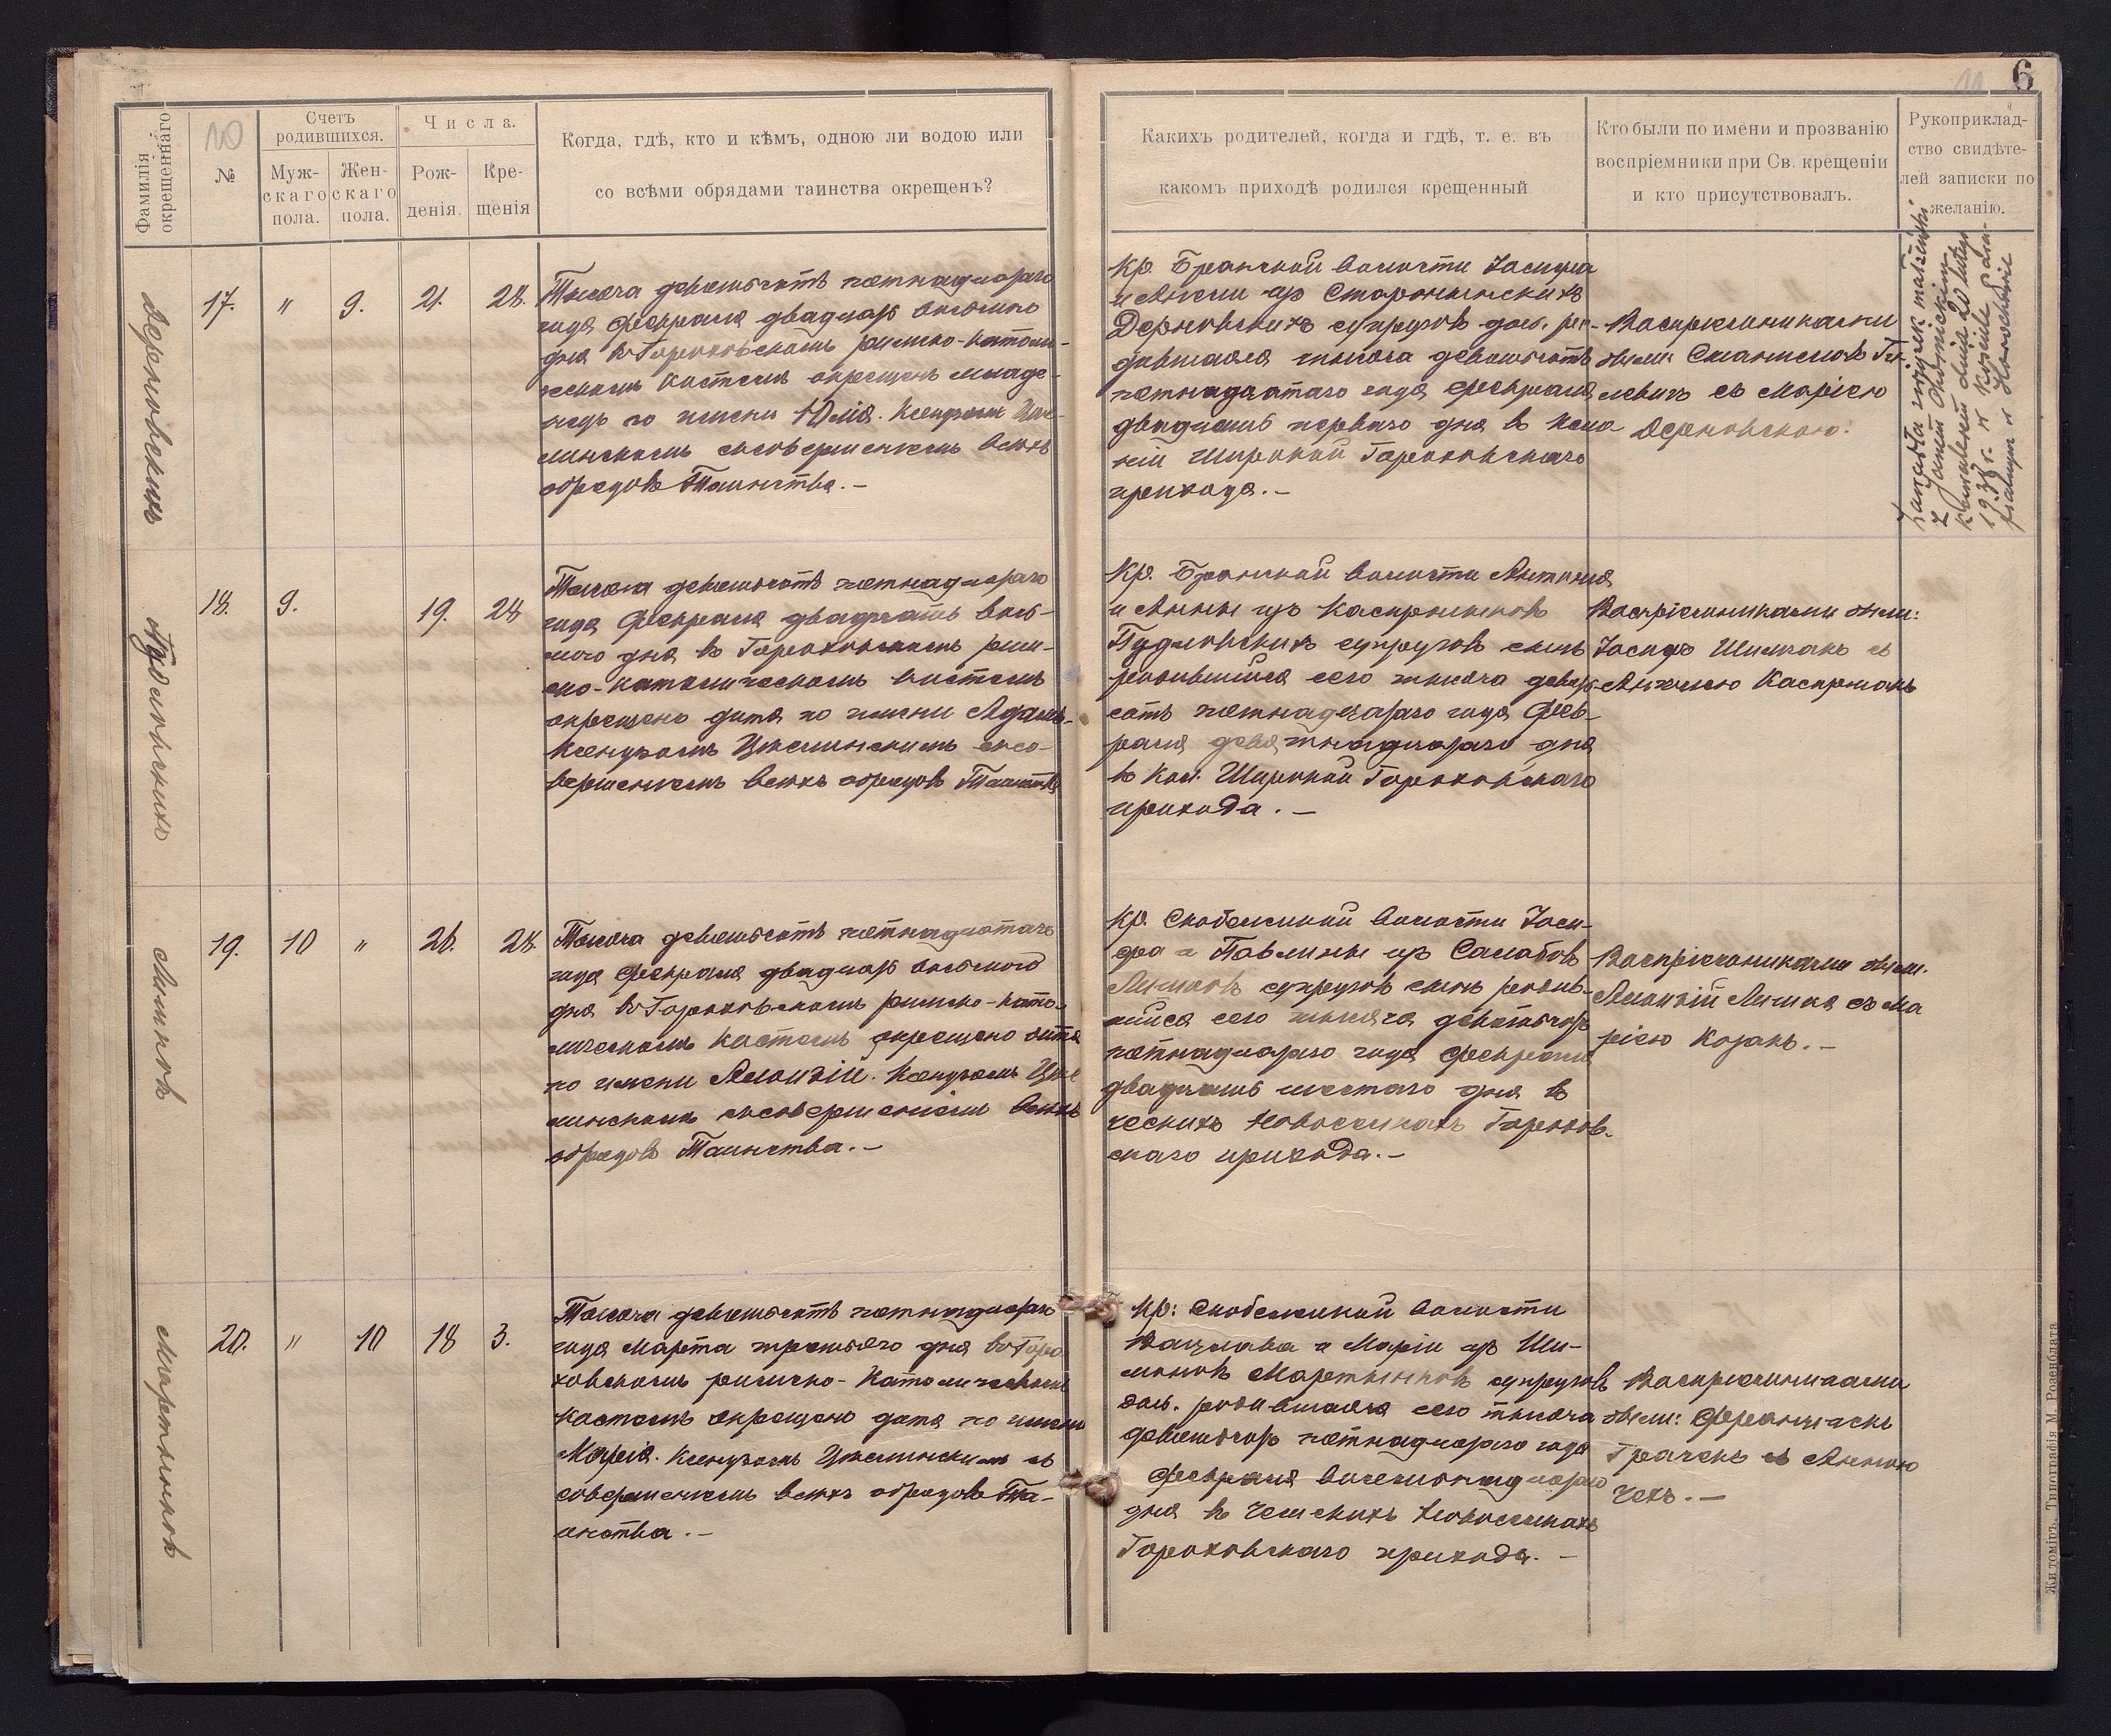 6
Фамилія окрещеннаго
№
Счетъ родившихся.
Муж-
скаго
пола.
Жен-
скаго
пола.
Числа.
Рож-
денія.
Кре-
щенія
Когда, гдѣ, кто и кѣмъ, одною ли водою или
со всѣми обрядами таинства окрещенъ?
Какихъ родителей, когда и гдѣ, т. е. въ
какомъ приходѣ родился крещенный
Кто были по имени и прозванію
воспріемники при Св. крещеніи
и кто присутствовалъ.
Рукоприклад-
ство свидѣте-
лей записки по
желанію.
17.
"
9.
21.
28.
Тысяча девятьсотъ пятнадцатаго
года Февраля двадцать восьмого
дня въ Гороховскомъ римско-катол-
ческомъ костелѣ окрещенъ младе-
нецъ по имени Юлія. Ксендзомъ
съ совершеніемъ всѣхъ
обрядовъ Таинства.-
Кр. Бранской волости Іосифа
и изъ
супруговъ доч. ро-
дившаяся тысяча девятьсотъ
пятнадцатаго года Февраля
двадцать перваго дня въ
Широкой Гороховскаго
прихода.-
Воспріемниками
были Станиславъ
съ Маріею
Żanęta związek małżeński
z Janem
dnia 20 lutego
w
18.
9.
19.
28
Тысяча девятьсотъ пятнадцатаго
года Февраля двадцать вось-
мого дня въ Гороховскомъ рим-
ско-католическомъ костелѣ
окрещено дитя по имени Адамъ-
Ксендзомъ съ со-
вершеніемъ всѣхъ обрядовъ Таинства
Кр. Бранской волости Антонія
и Анны изъ Каспржаковъ
супруговъ сынъ
родившійся сего тысяча девять
сотъ пятнадцатаго года Фев-
раля девятнадцатаго дня
въ Кол. Широкой Гороховскаго
прихода.-
Воспріемниками были:
Іосифъ съ
Каспржакъ
Личковъ
19.
10
"
26.
28.
Тысяча девятьсотъ пятнадцатаго
года Февраля двадцать восьмого
дня въ Гороховскомъ римско-като-
лическомъ костелѣ окрещено дитя
по имени Алоизій. Ксендзомъ
съ совершеніемъ всѣхъ
обрядовъ Таинства.-
Кр. Скобелкской волости Іоси-
фа и Павлины изъ
супруговъ сынъ родив-
шійся сего тысяча девятьсотъ
пятнадцатаго года Февраля
двадцать шестаго дня въ
Чешскихъ Новоселкахъ Горохов-
скаго прихода.-
Воспріемниками были.
Алоизій съ Ма
ріею Козакъ.-
Мартынковъ
20.
"
10
18
3.
Тысяча девятьсотъ пятнадцатаго
года Марта третьяго дня въ Горо-
ховскомъ римско-Католическомъ
костелѣ окрещено дитя по имени
Марія. Ксендзомъ съ
совершеніемъ всѣхъ обрядовъ Та-
инства.-
Кр: Скобелкской волости
Вацлава и Маріи изъ Ши-
мановъ Мартынковъ супруговъ
доч. родившаяся сего тысяча
девятьсотъ пятнадцатаго года
Февраля восемнадцатаго
дня въ Чешскихъ Новоселкахъ
Гороховскаго прихода.-
Воспріемниками
были: Францискъ
съ Анною
Чехъ.-
Житоміръ. Типографія М. Розенблата